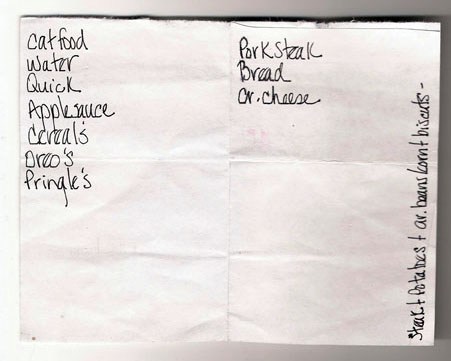 catfood
water
Quick
Applesauce
Cereal's
Oreo's
Pringle's
Pork Steak
Bread
Cr. cheese
Steak + Potatoes + Gr. beans/corn + biscuits -